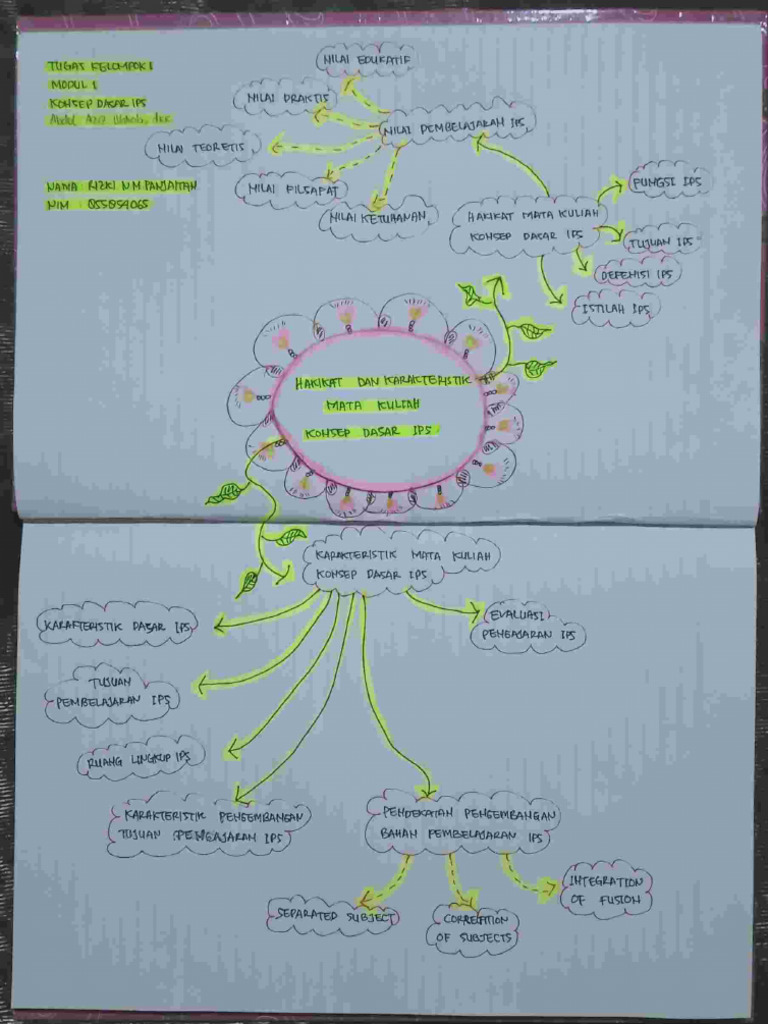 TUGAS KELOMPOK 1
MODUL 1
KONSEP DASAR IPS
Abdul Aziz
NAMA : RIZKI N M PANJAITAN
NIM : 855859065
NILAI EDUKATIF
NILAI PRAKTIS
NILAI TEORETIS
NILAI FILSAFAT
NILAI KETUHANAN
NILAI PEMBELAJARAN IPS
HAKIKAT MATA KULIAH
KONSEP DASAR IPS
FUNGSI IPS
TUJUAN IPS
DEFENISI IPS
ISTILAH IPS
HAKIKAT DAN KARAKTERISTIK
MATA KULIAH
KONSEP DASAR IPS
KARAKTERISTIK MATA KULIAH
KONSEP DASAR IPS
EVALUASI
PENGAJARAN IPS
KARAKTERISTIK DASAR IPS
TUJUAN
PEMBELAJARAN IPS
RUANG LINGKUP IPS
KARAKTERISTIK PENGEMBANGAN
TUJUAN PENGAJARAN IPS
PENDEKATAN PENGEMBANGAN
BAHAN PEMBELAJARAN IPS
SEPARATED SUBJECT
CORRELATION
OF SUBJECTS
INTEGRATION
OF FUSION